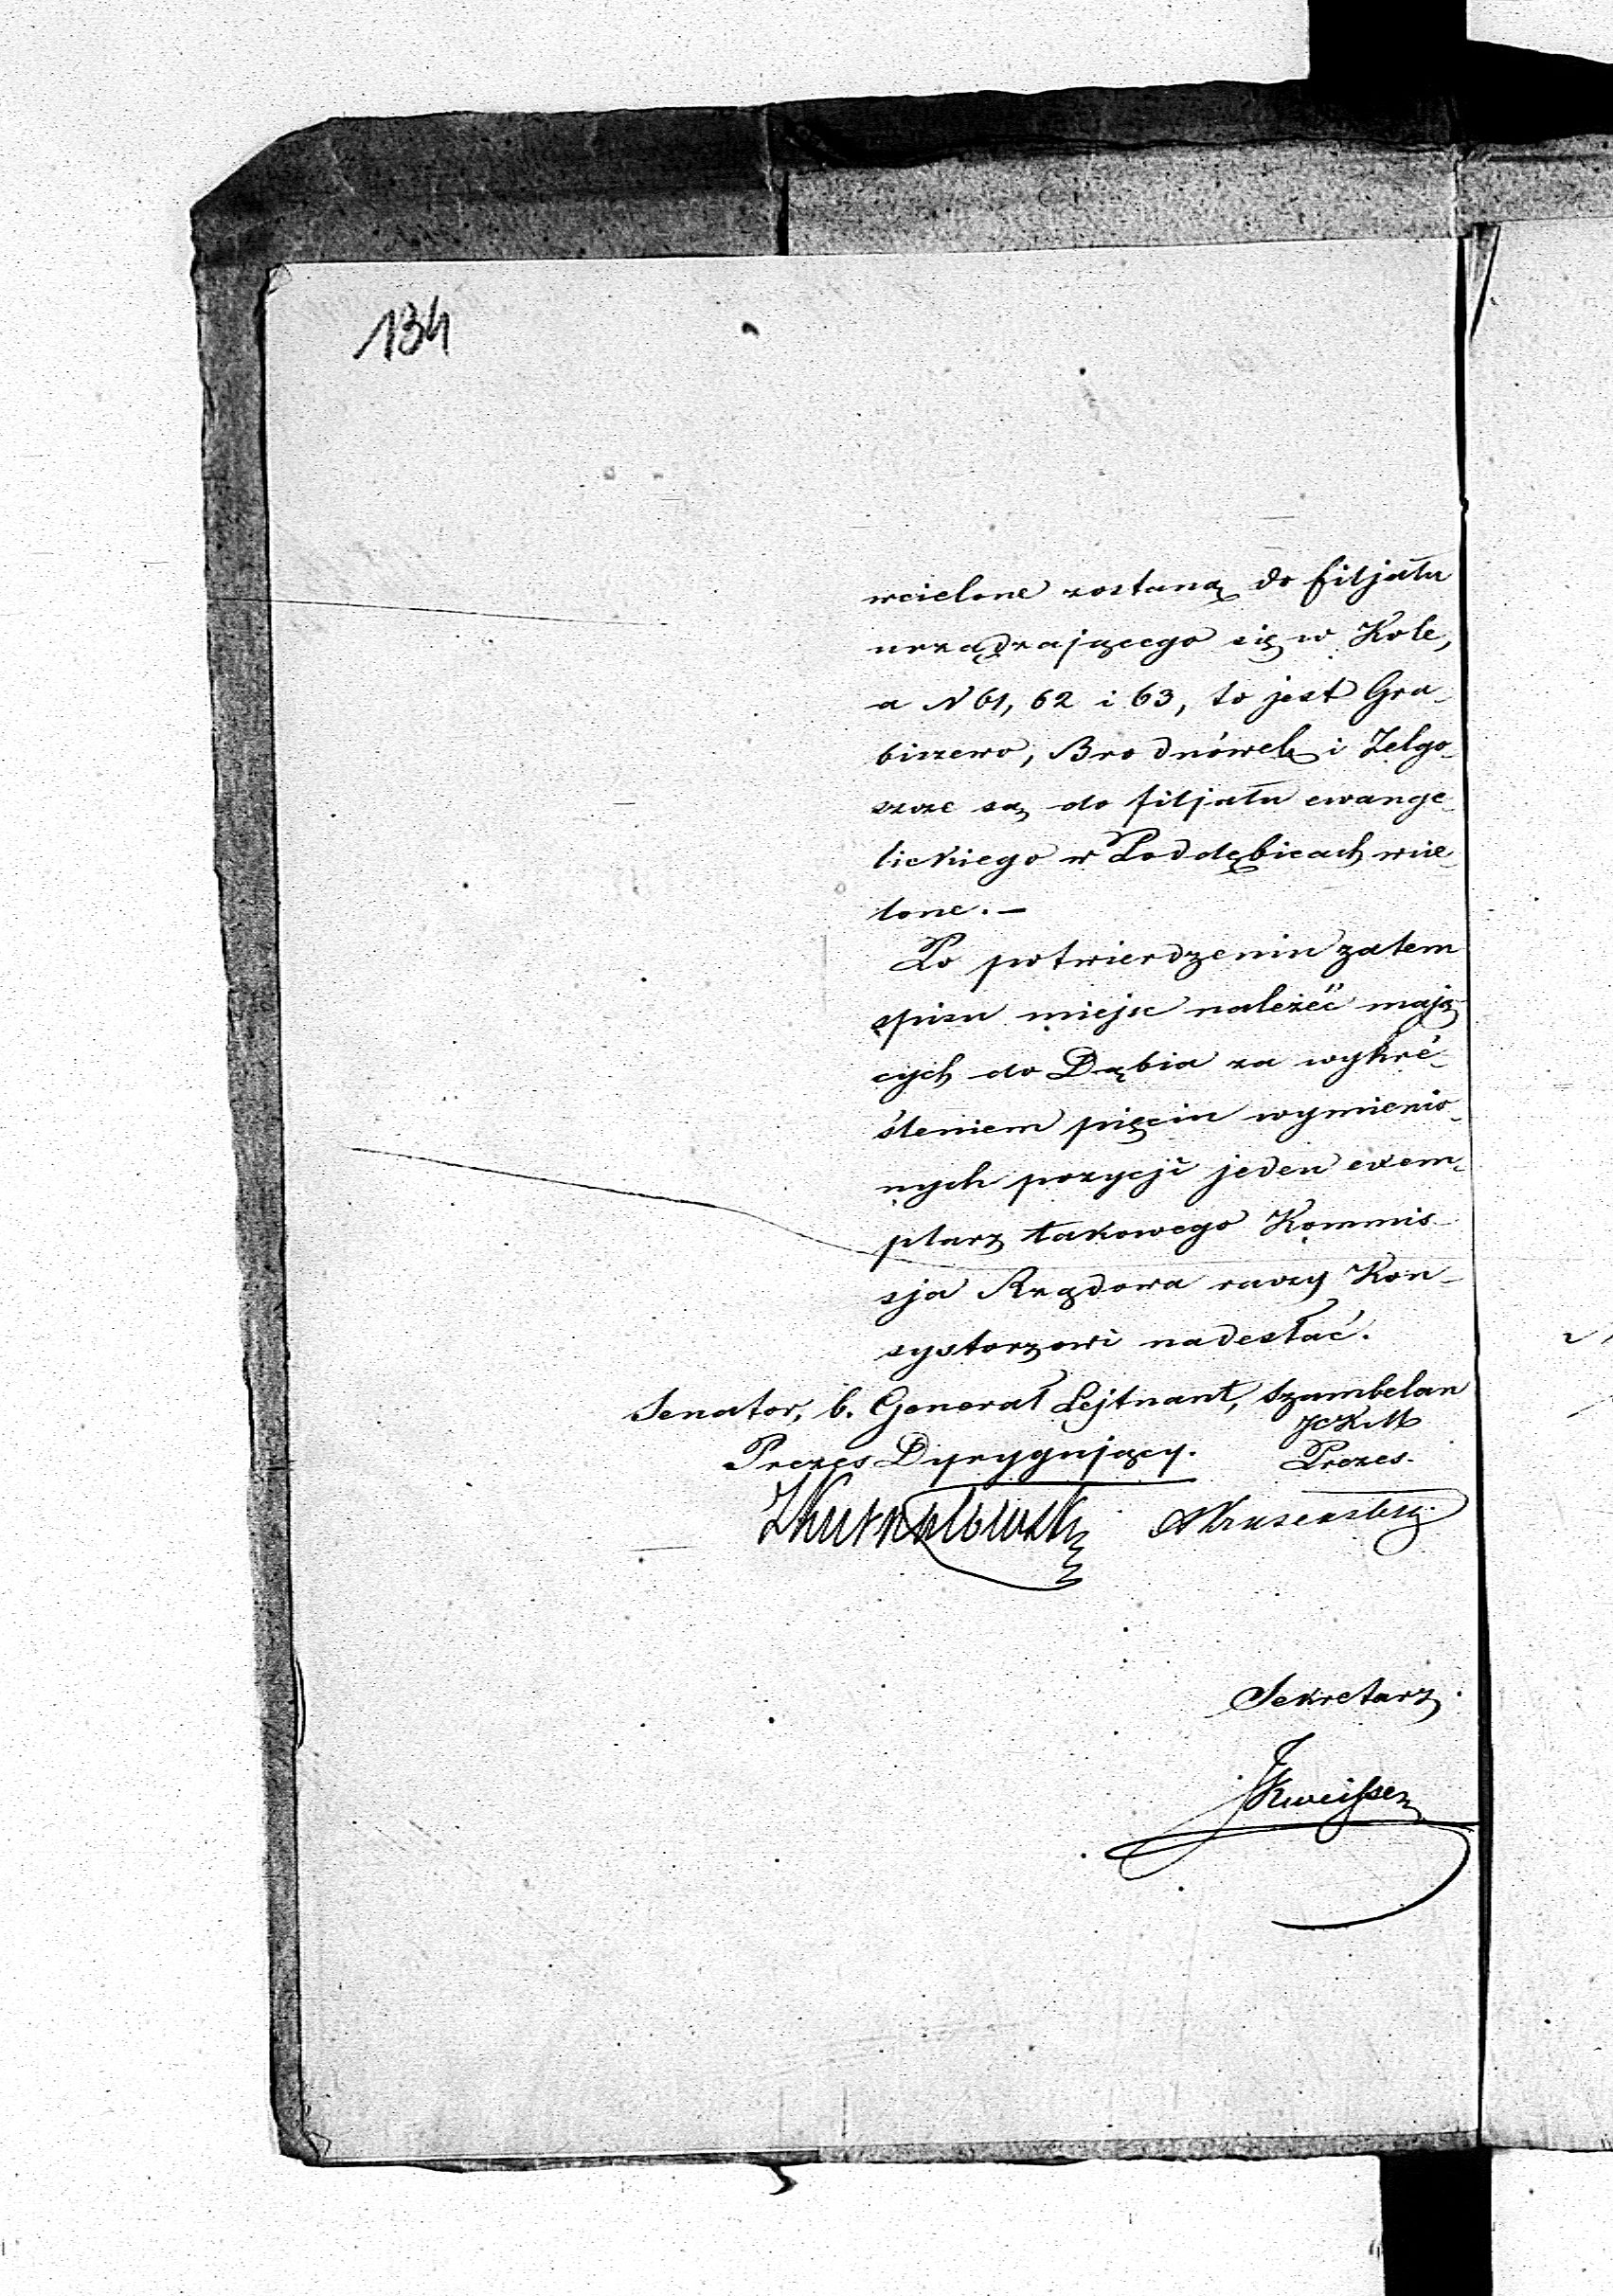 134
wcielone zostaną do filjału
urządzającego się w Kole,
a N 61, 62 i 63, to jest Gra-
biszewo, Brodnówek i Zelgo-
szcze są do filjału ewange-
lickiego w Poddębicach wcie-
lone. —
Po potwierdzeniu zatem
spisu miejsc należeć mają-
cych do Dąbia za wykre-
śleniem pięciu wymienio-
nych pozycji jeden exem-
plarz takowego Kommis-
sja Rządowa raczy Kon-
systorzowi nadesłać.
Senator, b. Generał Lejtnant, Szambelan
JCKM
Prezes Dyrygujący. Prezes.
Sekretarz